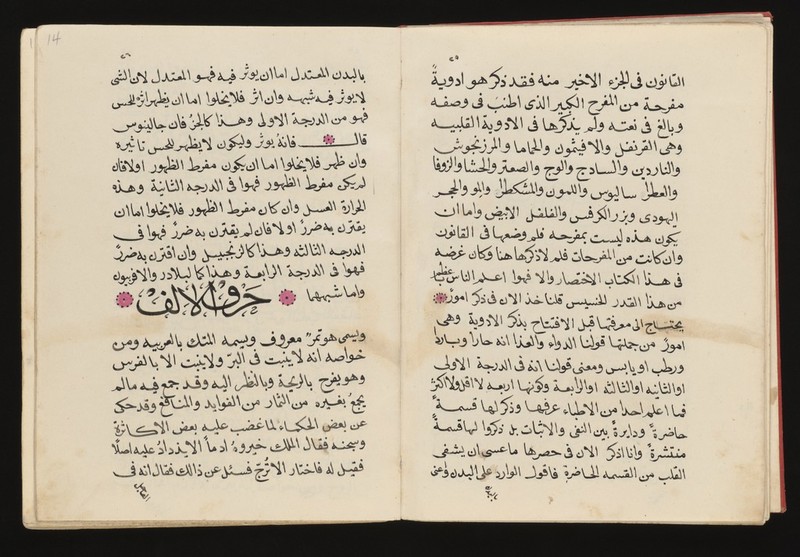 ٢٥
القانون فى الجزء الاخير منه فقد ذكر هو ادوية
مفرحة من المفرح الكبير الذى اطنب فى وصفه
وبالغ فى نعته ولم يذكرها فى الادوية القلبيه
وهى القرنفل والافيثمون والحماما والمرزنجوش
والناردين والسادج والوج والصعتر والحشا والزوفا
سالیوس واللمون والمشكطر والمو والحجر
اليهودى وبزر الكرفس والفلفل الابيض واما ان
يكون هذه ليست بمفرحه فلم وضعها فى القانون
وان كانت من المفرحات فلم لا ذكرها هنا وكان غرضه
فى هذا الكتاب الاختصار والا فهوا اعلم الناس
من هذا القدر الخسيس فلناخذ الان فى ذكر امور
يحتاج الى معرفتها قبل الافتتاح بذكر الادوية وهى
امور من جملتها قولنا الدواء والغذا انه حارا وباردا
ورطب او يابس ومعنى قولنا انه فى الدرجة الاولى
او الثانيه او الثالثه او الرابعة وكونها اربعه لا اقل ولا اكثر
فما اعلم احدا من الاطباء عرفها وذكر لها قسمة
حاضرة ودايرة بين النفى والاثبات بل ذكروا لها قسمة
منتشرة وانا اذكر الان فى حصرها ما عسى ان يشفى
القلب من القسمه الحاضرة فاقول الوارد على البدن واعنى
٢٦
بالبدن المعتدل اما ان يوثر فيه فهو المعتدل لان الشى
لا يوثر فيه شبهه وان اثر فلا يخلوا اما ان يظهر اثره للحس
فهو من الدرجة الاولى وهذا كالخبز فان جالينوس
قال فانه يوثر وليكون لا يظهر للحس تاثيره
وان ظهر فلا يخلوا اما ان يكون مفرط الظهور اولا فان
لم يكن مفرط الظهور فهوا فى الدرجه الثانية وهذه
الحرارة العسل وان كان مفرط الظهور فلا يخلوا اما ان
يقترن به ضرر اولا فان لم يقترن به ضرر فهوا فى
الدرجه الثالثه وهذا كالزنجبيل وان اقترن به ضرر
فهوا فى الدرجة الرابعة وهذا كالبلادر والافربيون
واما شبههما حرف الالف
هو ثمر معروف ويسمه المتك بالعربيه ومن
خواصه انه لا ينبت فى البر ولا ينبت الا بالغرس
وهو يفرح بالريحة وبالنظر اليه وقد جمع فيه ما لم
يجمع بغيره من الثمار من الفوايد والمنافع وقد حكى
عن بعض الحكماء لما غضب عليه بعض الاكاثرة
وسجنه فقال الملك خيروه ادما لا يزداد عليه اصلا
فقيل له فاختار الاترج فسئل عن ذالك فقال انه فى